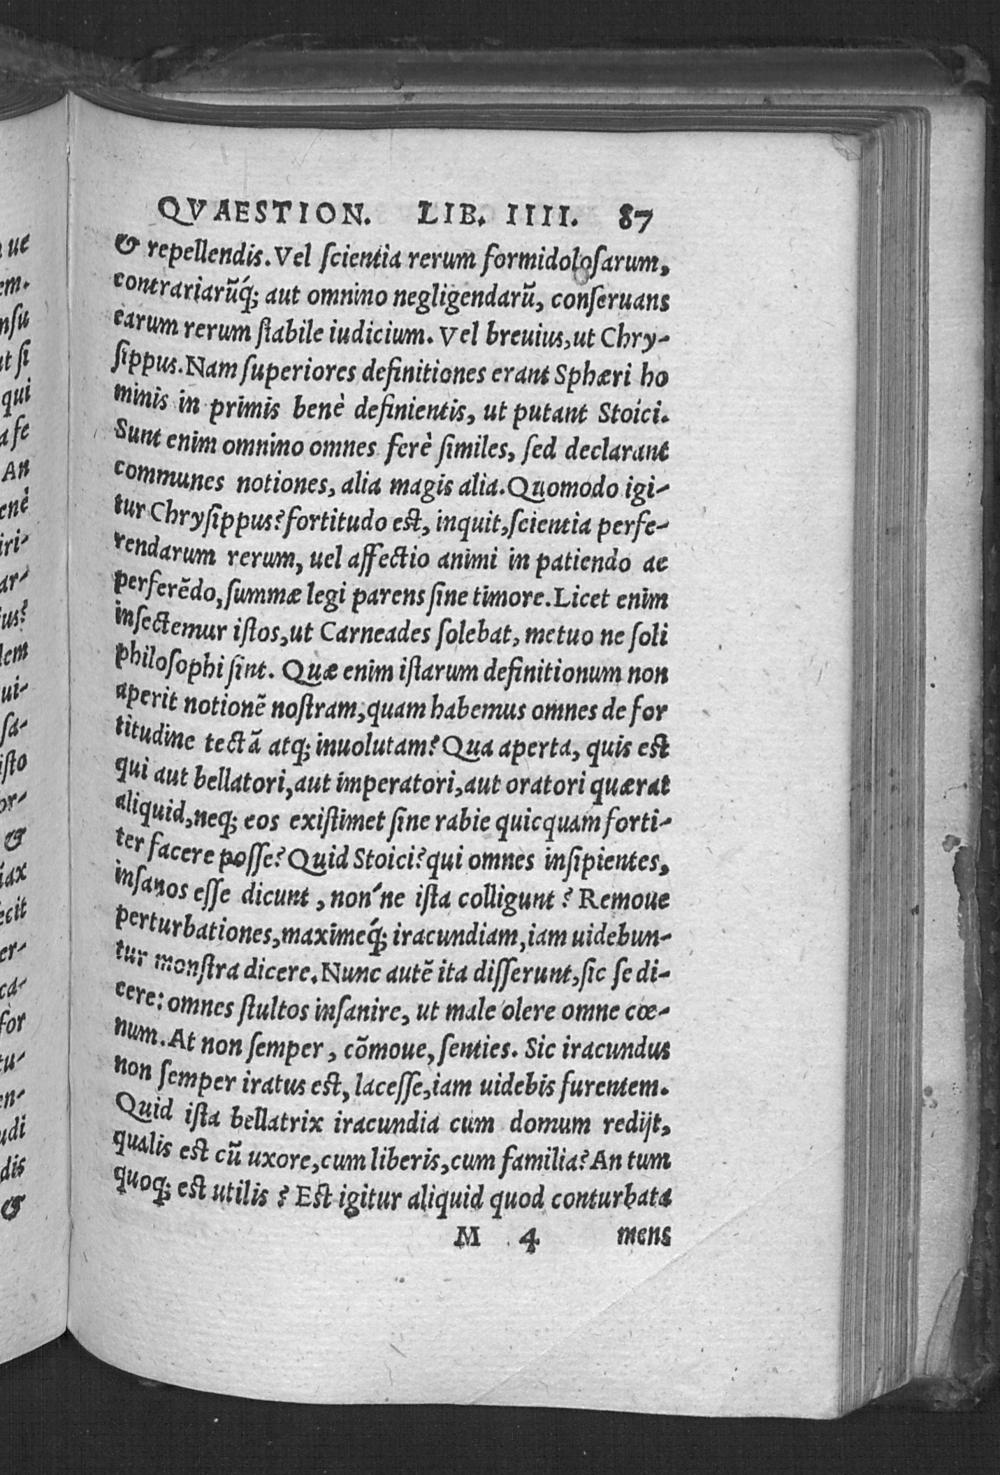 QVAESTION. LIB. IIII. 87
& repellendis. Vel scientia rerum formidolosarum,
contrariarũq́; aut omnino negligendarũ, conseruans
earum rerum stabile iudicium. Vel breuius, ut Chry-
sippus. Nam superiores definitiones erant Sphæri ho
minis in primis benè definientis, ut putant Stoici.
Sunt enim omnino omnes ferè similes, sed declarant
communes notiones, alia magis alia. Quomodo igi-
tur Chrysippus? fortitudo est, inquit, scientia perfe-
rendarum rerum, uel affectio animi in patiendo ac
perferẽdo, summæ legi parens sine timore. Licet enim
insectemur istos, ut Carneades solebat, metuo ne soli
philosophi sint. Quæ enim istarum definitionum non
aperit notionẽ nostram, quam habemus omnes de for
titudine tectã atq; inuolutam? Qua aperta, quis est
qui aut bellatori, aut imperatori, aut oratori quærat
aliquid, neq; eos existimet sine rabie quicquam forti-
ter facere posse? Quid Stoici? qui omnes insipientes,
insanos esse dicunt, non´ne ista colligunt? Remoue
perturbationes, maximeq́; iracundiam, iam uidebun-
tur monstra dicere. Nunc autẽ ita disserunt, sic se di-
cere: omnes stultos insanire, ut male olere omne cœ-
num. At non semper, cõmoue, senties. Sic iracundus
non semper iratus est, lacesse, iam uidebis furentem.
Quid ista bellatrix iracundia cum domum redijt,
qualis est cũ uxore, cum liberis, cum familia? An tum
quoq; est utilis? Est igitur aliquid quod conturbata
M 4 mens